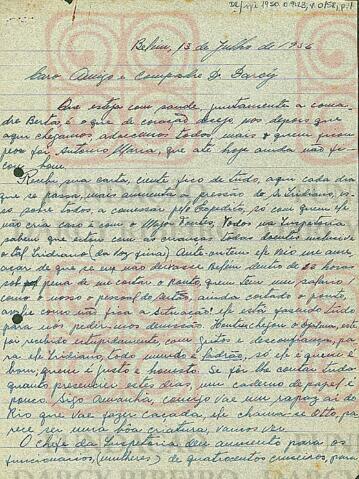 Belém, 13 de Julho de 1956
Caro Amigo e Compadre Dr. Darcy
Que esteja com saude, juntamente a coma-
dre Berta é o que de coração desejo, nos depois que
aqui chegamos, adoecemos todos, mais quem
foi Antonio Maria, que ate hoje ainda não fi-
cou bem.
Recebi sua carta, ciente fico de tudo, aqui cada dia
que se passa, mais aumenta a pressão do Sr. Iridiano,
sobre todos, a comessar pelo Expedito, so com quem ele
não cria caso é com o Major Fontes, Todos na Inspetoria
sabem que estou com as crianças todas doentes inclusive
o tal Iridiano (da voz fina) Ante-ontem ele veio me amea-
çar de que se eu não deixasse Belem dentro de horas
sob pena de me cortar o ponto, quem leva um safano
como o nosso o pessoal do sertão, ainda cortado o ponto,
como não fica a situação! ele está fazendo tudo
para nos pedir-mos demissão. Hontem chegou o
foi recebido estupidamente com gritos e desconfiança, pa-
ra ele Iridiano, todo mundo é ladrão, só ele é quem é
bom; quem é justo e honesto. Se for lhe contar tudo
quanto presenciei estes dias, um caderno de papel é
pouco. Sigo amanha, comigo vae um rapaz ai do
Rio que vae fazer caçada, ele chama-se Otto, pa-
rece ser uma bôa criatura, vamos ver.
O chefe da Inspetoria deu aumento para os
funcionarios, (mulheres) de quatrocentos cruzeiros, para